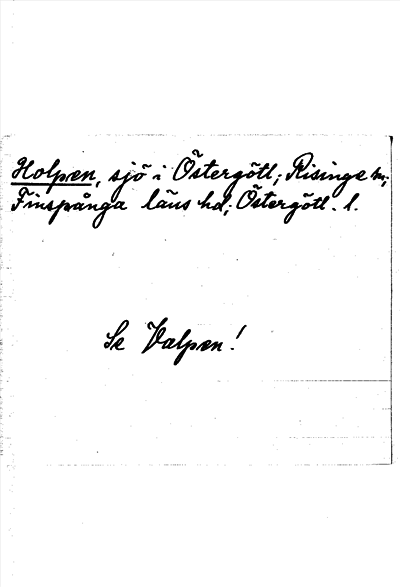 Holpen, sjö i Östergötl; Risinge sn;
Finspånga läns hd; Östergötl. l.
Se Valpen!